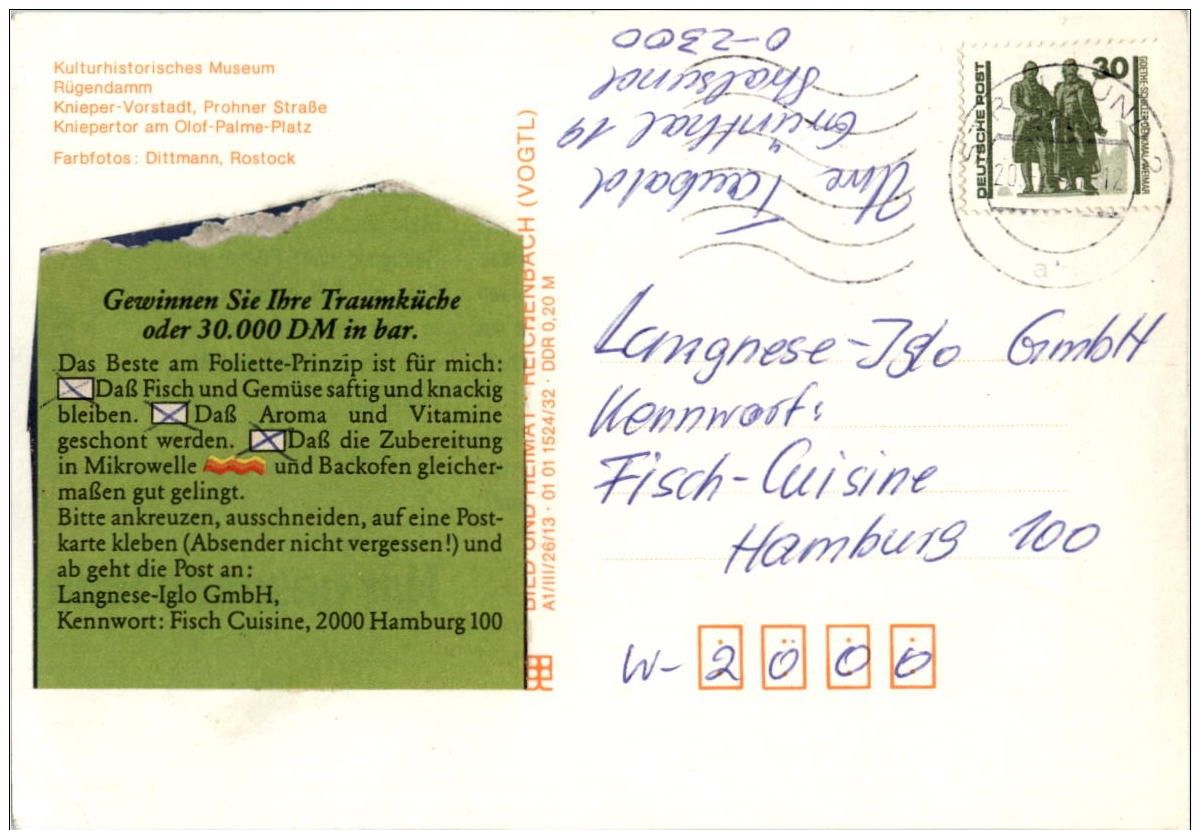 Kulturhistorisches Museum
Rügendamm
Knieper-Vorstadt, Prohner Straße
Kniepertor am Olof-Palme-Platz
Farbfotos: Dittmann, Rostock
Gewinnen Sie Ihre Traumküche
oder 30.000 DM in bar.
Das Beste am Foliette-Prinzip ist für mich:
Daß Fisch und Gemüse saftig und knackig
bleiben. Daß Aroma und Vitamine
geschont werden. Daß die Zubereitung
in Mikrowelle und Backofen gleicher-
maßen gut gelingt.
Bitte ankreuzen, ausschneiden, auf eine Post-
karte kleben (Absender nicht vergessen!) und
ab geht die Post an:
Langnese-Iglo GmbH,
Kennwort: Fisch Cuisine, 2000 Hamburg 100
BILD UND HEIMAT · REICHENBACH (VOGTL)
A1/III/26/13 · 01 01 1524/32 · DDR 0,20 M
Uwe Taubald
Grünthal 19
Stralsund
O-2300
DEUTSCHE POST
30
GOETHE-SCHILLER-DENKMAL WEIMAR
Langnese-Iglo GmbH
Kennwort:
Fisch-Cuisine
Hamburg 100
W-2000